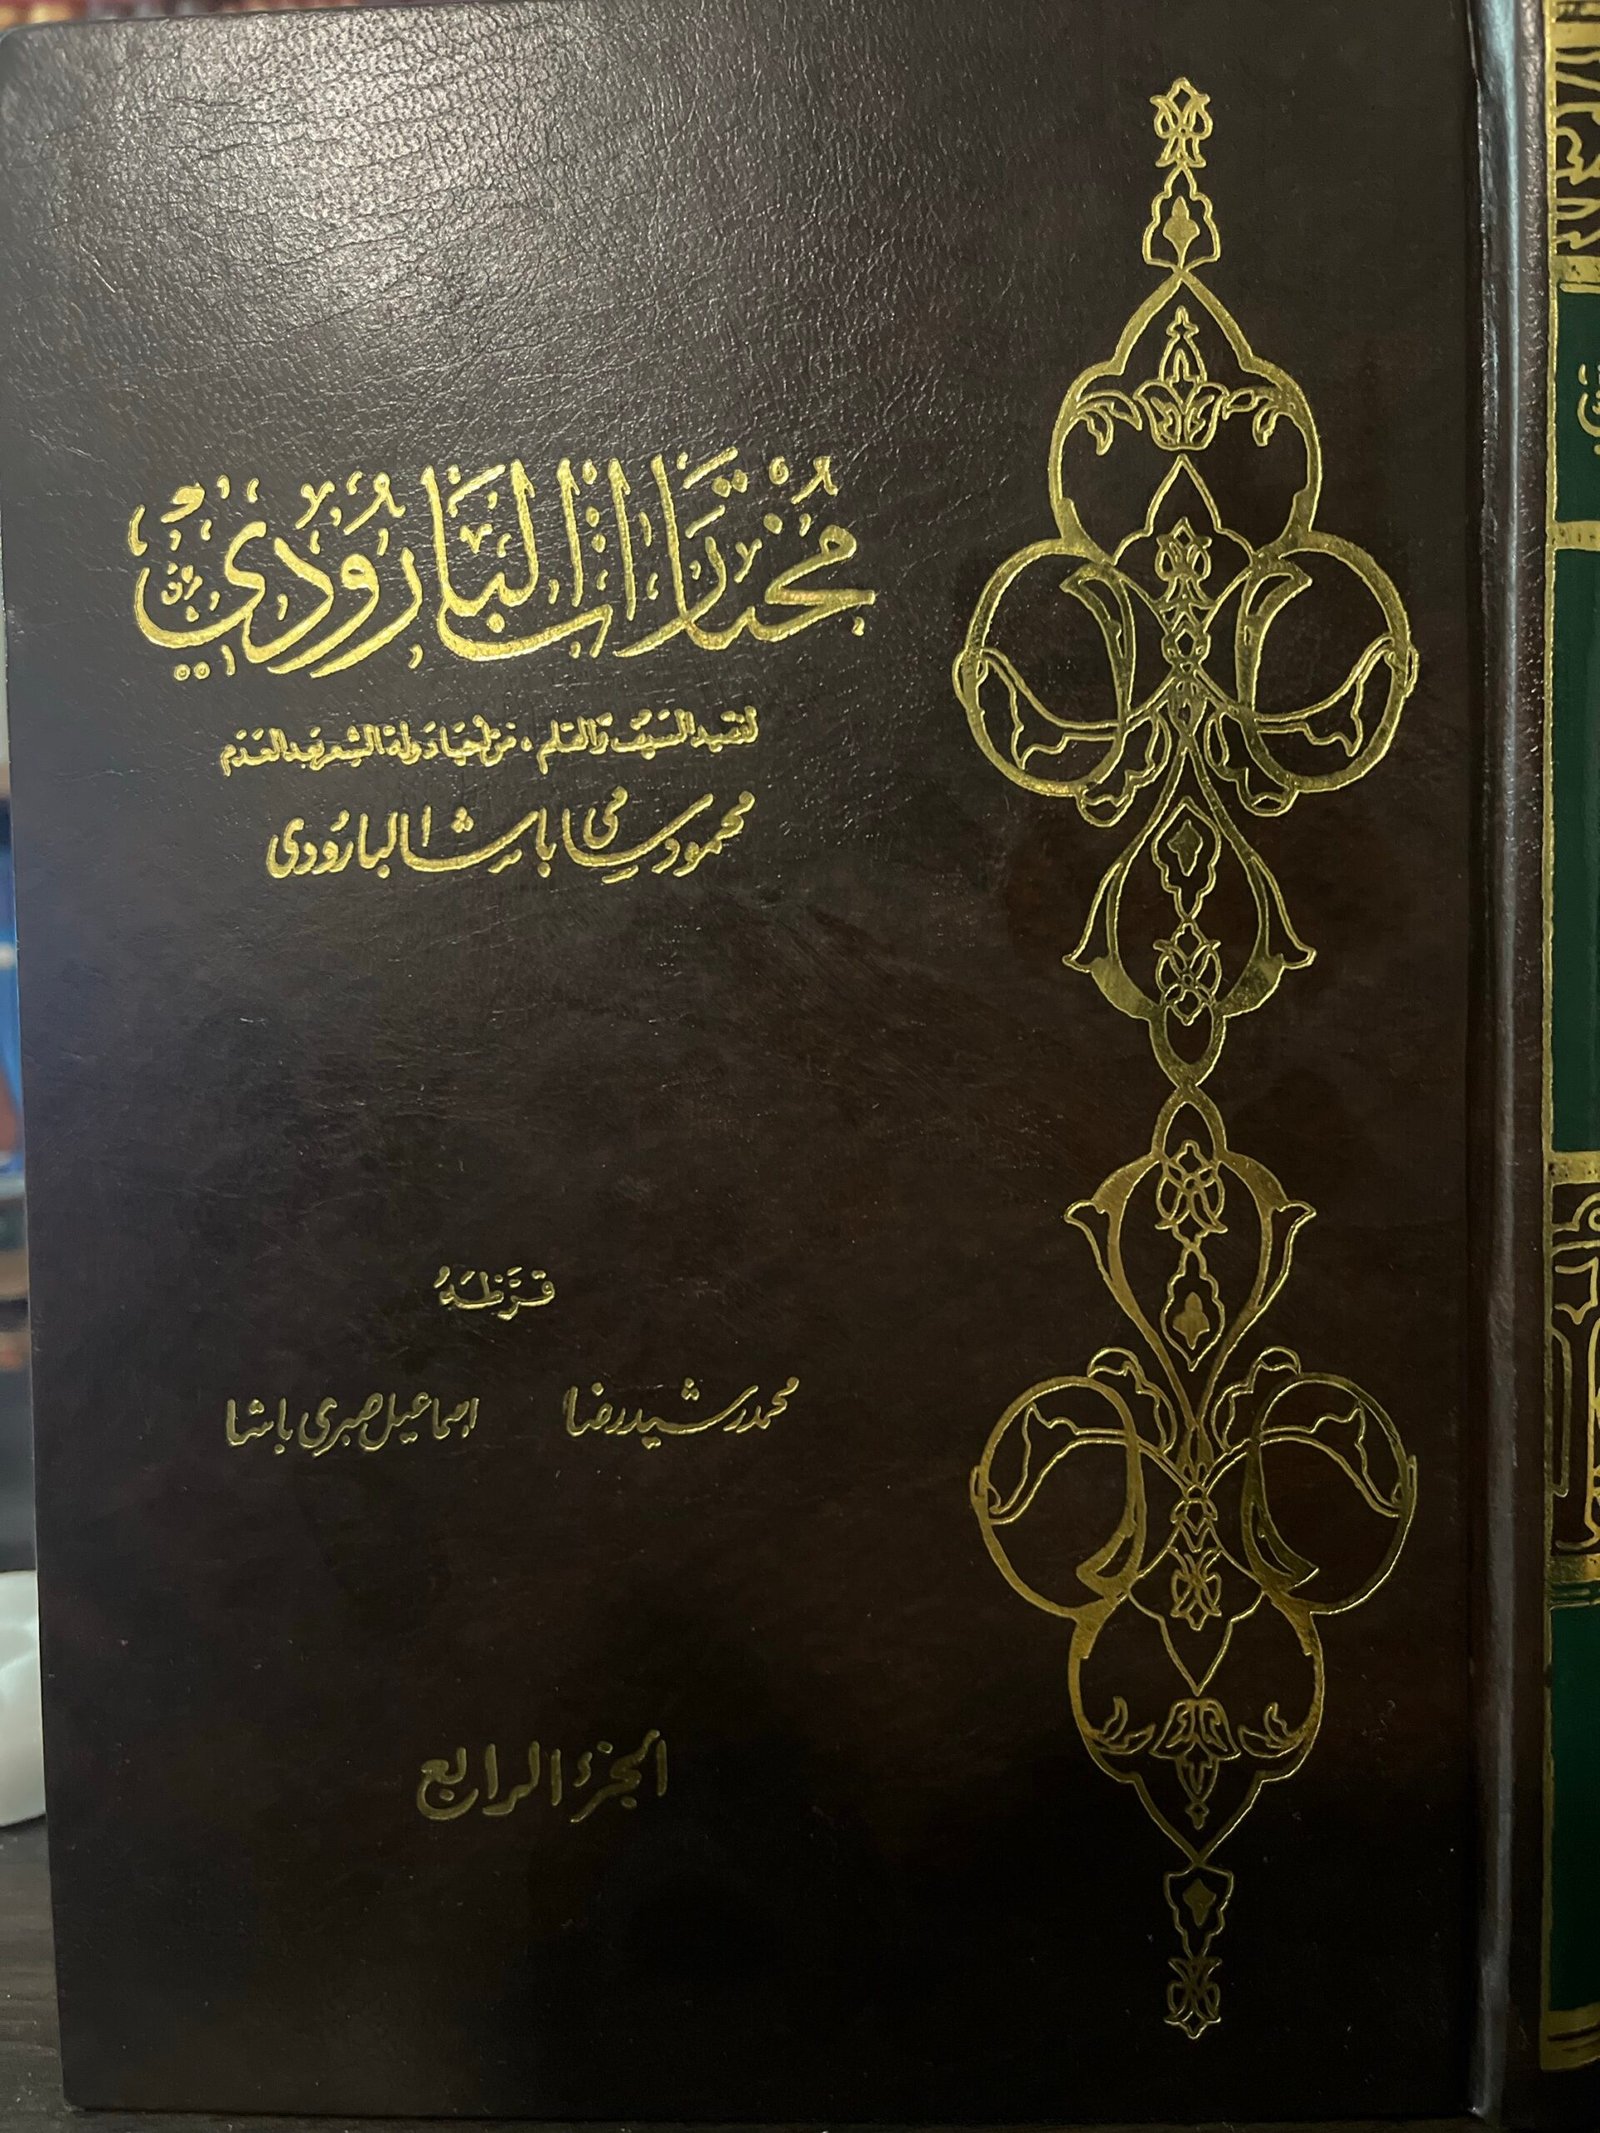 مُختَارَات البَارُودِي
لفقيد السَيف وَالقَلم، مَن أحيَا دَولة الشِعر بَعد العَدَم
محمود سامي باشا البارُودي
قَرَّظَهُ
محمد رشيد رضا اسماعيل صبري باشا
الجزء الرابع